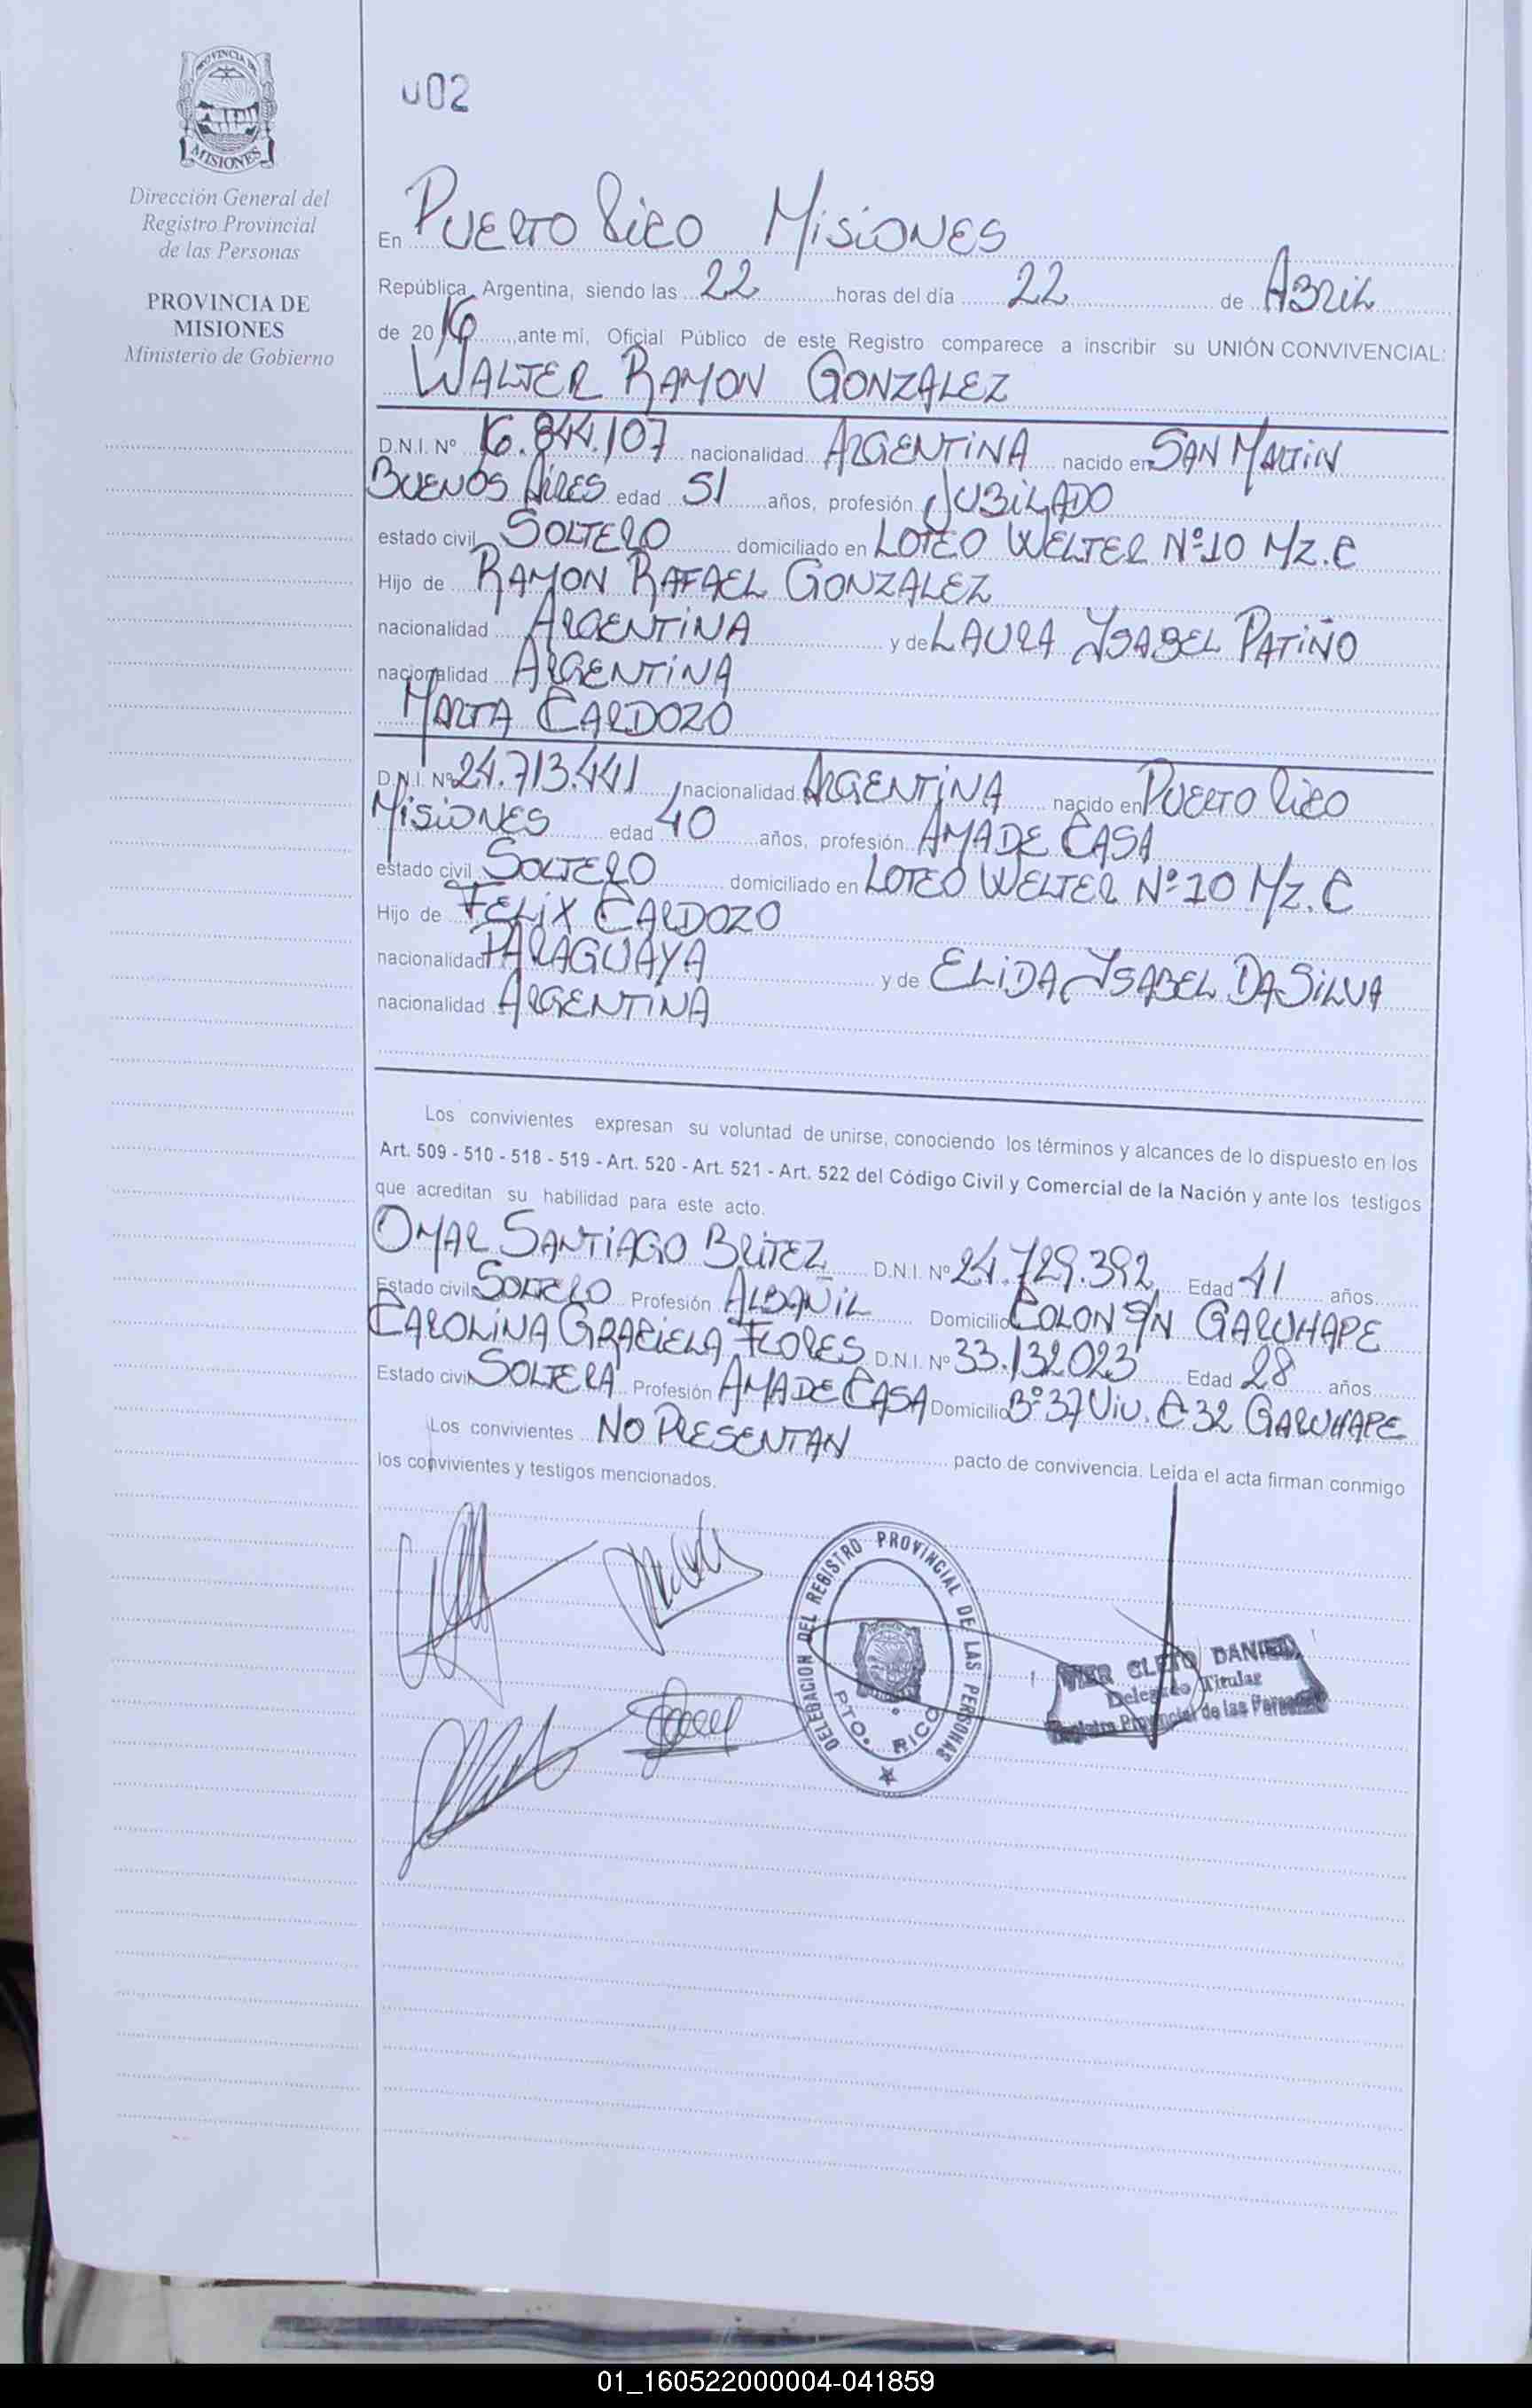 PROVINCIA DE
MISIONES
Dirección General del
Registro Provincial
de las Personas
PROVINCIA DE
MISIONES
Ministerio de Gobierno
002
En PUERTO RICO MISIONES
República Argentina, siendo las 22 horas del día 22 de ABRIL
de 2016, ante mi, Oficial Público de este Registro comparece a inscribir su UNIÓN CONVIVENCIAL:
WALTER RAMON GONZALEZ
D.N.I. Nº 16.844.107 nacionalidad ARGENTINA nacido en SAN MARTIN
BUENOS AIRES edad 51 años, profesión JUBILADO
estado civil SOLTERO domiciliado en LOTEO WELTER Nº 10 MZ. C
Hijo de RAMON RAFAEL GONZALEZ
nacionalidad ARGENTINA y de LAURA YSABEL PATIÑO
nacionalidad ARGENTINA
MARTA CARDOZO
D.N.I. Nº 24.713.441 nacionalidad ARGENTINA nacido en PUERTO RICO
MISIONES edad 40 años, profesión AMA DE CASA
estado civil SOLTERO domiciliado en LOTEO WELTER Nº 10 MZ. C
Hijo de FELIX CARDOZO
nacionalidad PARAGUAYA y de ELIDA YSABEL DA SILVA
nacionalidad ARGENTINA
Los convivientes expresan su voluntad de unirse, conociendo los términos y alcances de lo dispuesto en los
Art. 509 - 510 - 518 - 519 - Art. 520 - Art. 521 - Art. 522 del Código Civil y Comercial de la Nación y ante los testigos
que acreditan su habilidad para este acto.
OMAR SANTIAGO BRITEZ D.N.I. Nº 24.729.392 Edad 41 años
Estado civil SOLTERO Profesión ALBAÑIL Domicilio COLON S/N GARUHAPE
CAROLINA GRACIELA FLORES D.N.I. Nº 33.132.023 Edad 28 años
Estado civil SOLTERA Profesión AMA DE CASA Domicilio Bº 37 VIV. C 32 GARUHAPE
Los convivientes NO PRESENTAN pacto de convivencia. Leída el acta firman conmigo
los convivientes y testigos mencionados.
DELEGACION DEL REGISTRO PROVINCIAL DE LAS PERSONAS
PTO. RICO
CLETO DANIEL
Delegado Titular
Registro Provincial de las Personas
01_160522000004-041859